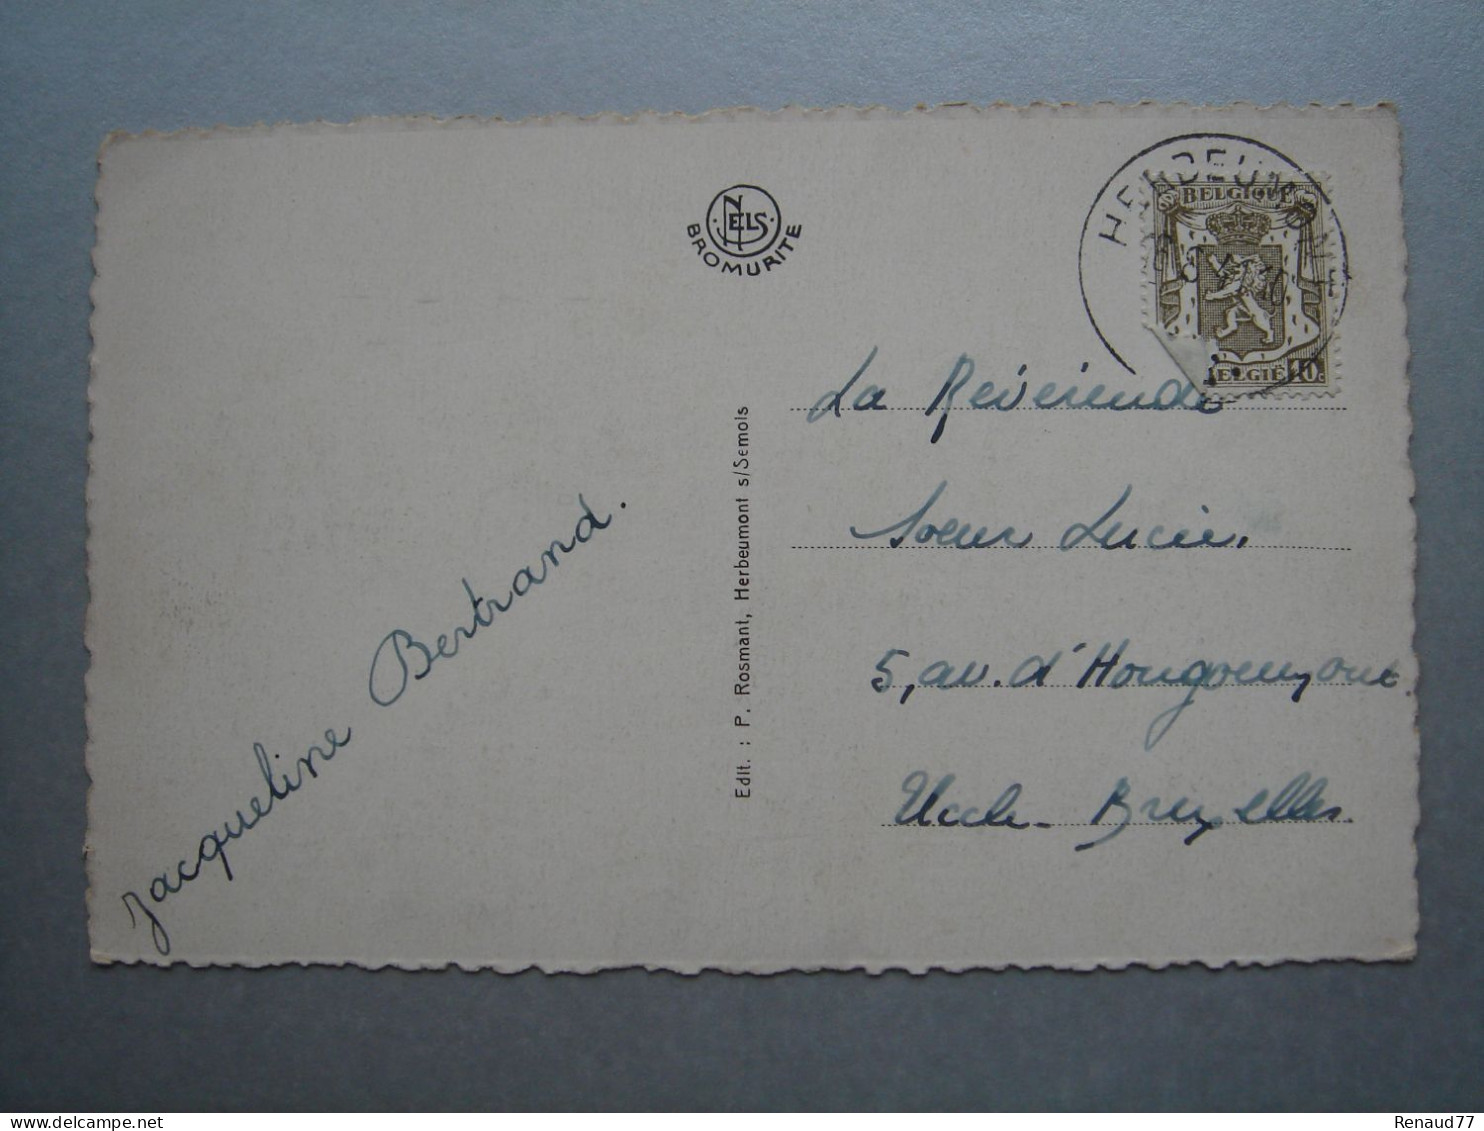 NELS
BROMURITE
HERBEUMONT
BELGIQUE
BELGIË 40c
La Révérende
Soeur Lucie,
5, av. d'Hougoumont.
Uccle - Bruxelles.
Edit. : P. Rosmant, Herbeumont s/Semois
Jacqueline Bertrand.
Renaud77